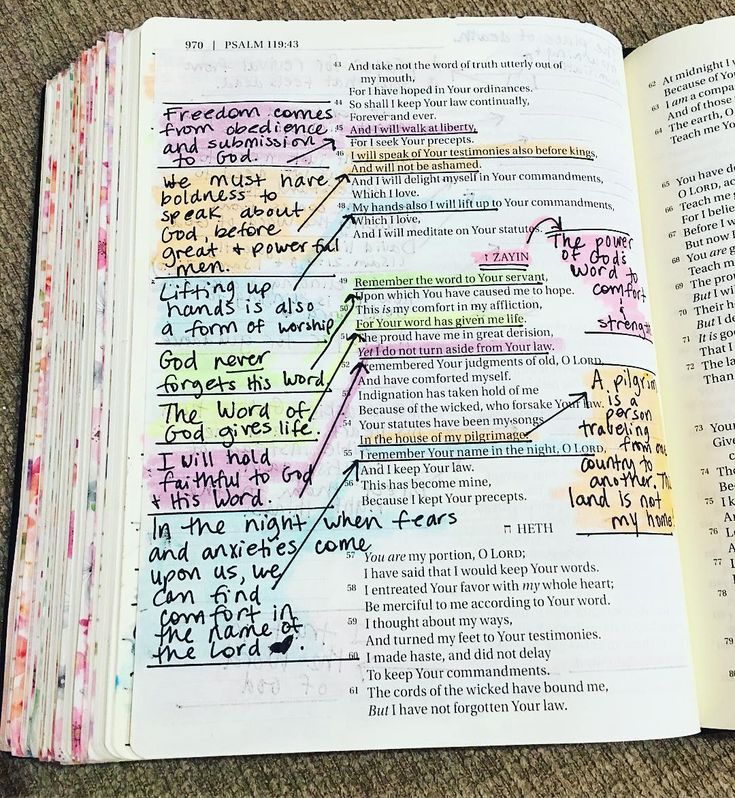 970 | PSALM 119:43
Freedom comes
from obedience
and submission
to God.
We must have
boldness to
speak about
God, before
great + powerful
men.
Lifting up
hands is also
a form of worship
God never
forgets His Word
The Word of
God gives life.
I will hold
faithful to God
+ His Word.
In the night when fears
and anxieties come
upon us, we
can find
comfort in
the name of
the Lord
43 And take not the word of truth utterly out of
my mouth,
For I have hoped in Your ordinances.
44 So shall I keep Your law continually,
Forever and ever.
45 And I will walk at liberty,
For I seek Your precepts.
46 I will speak of Your testimonies also before kings,
And will not be ashamed.
And I will delight myself in Your commandments,
Which I love.
48 My hands also I will lift up to Your commandments,
Which I love,
And I will meditate on Your statutes.
ז ZAYIN
49 Remember the word to Your servant,
Upon which You have caused me to hope.
50 This is my comfort in my affliction,
For Your word has given me life.
51 The proud have me in great derision,
Yet I do not turn aside from Your law.
52 I remembered Your judgments of old, O LORD,
And have comforted myself.
53 Indignation has taken hold of me
Because of the wicked, who forsake Your law.
54 Your statutes have been my songs
In the house of my pilgrimage.
55 I remember Your name in the night, O LORD,
And I keep Your law.
56 This has become mine,
Because I kept Your precepts.
ח HETH
57 You are my portion, O LORD;
I have said that I would keep Your words.
58 I entreated Your favor with my whole heart;
Be merciful to me according to Your word.
59 I thought about my ways,
And turned my feet to Your testimonies.
60 I made haste, and did not delay
To keep Your commandments.
61 The cords of the wicked have bound me,
But I have not forgotten Your law.
The power
of God's
Word to
comfort
&
strength
A pilgrim
is a
person
traveling
from one
country to
another. This
land is not
my home!
62 At midnight I w
Because of You
63 I am a compa
And of those
64 The earth, O
Teach me Yo
65 You have d
O LORD, ac
66 Teach me g
For I belie
67 Before I w
But now I
68 You are g
Teach m
69 The prou
But I wil
70 Their h
But I de
71 It is goo
That I
72 The la
Than
73 Your
Give
c
74 Tho
Bec
75 I k
An
76 Le
Ac
77
78
79
80